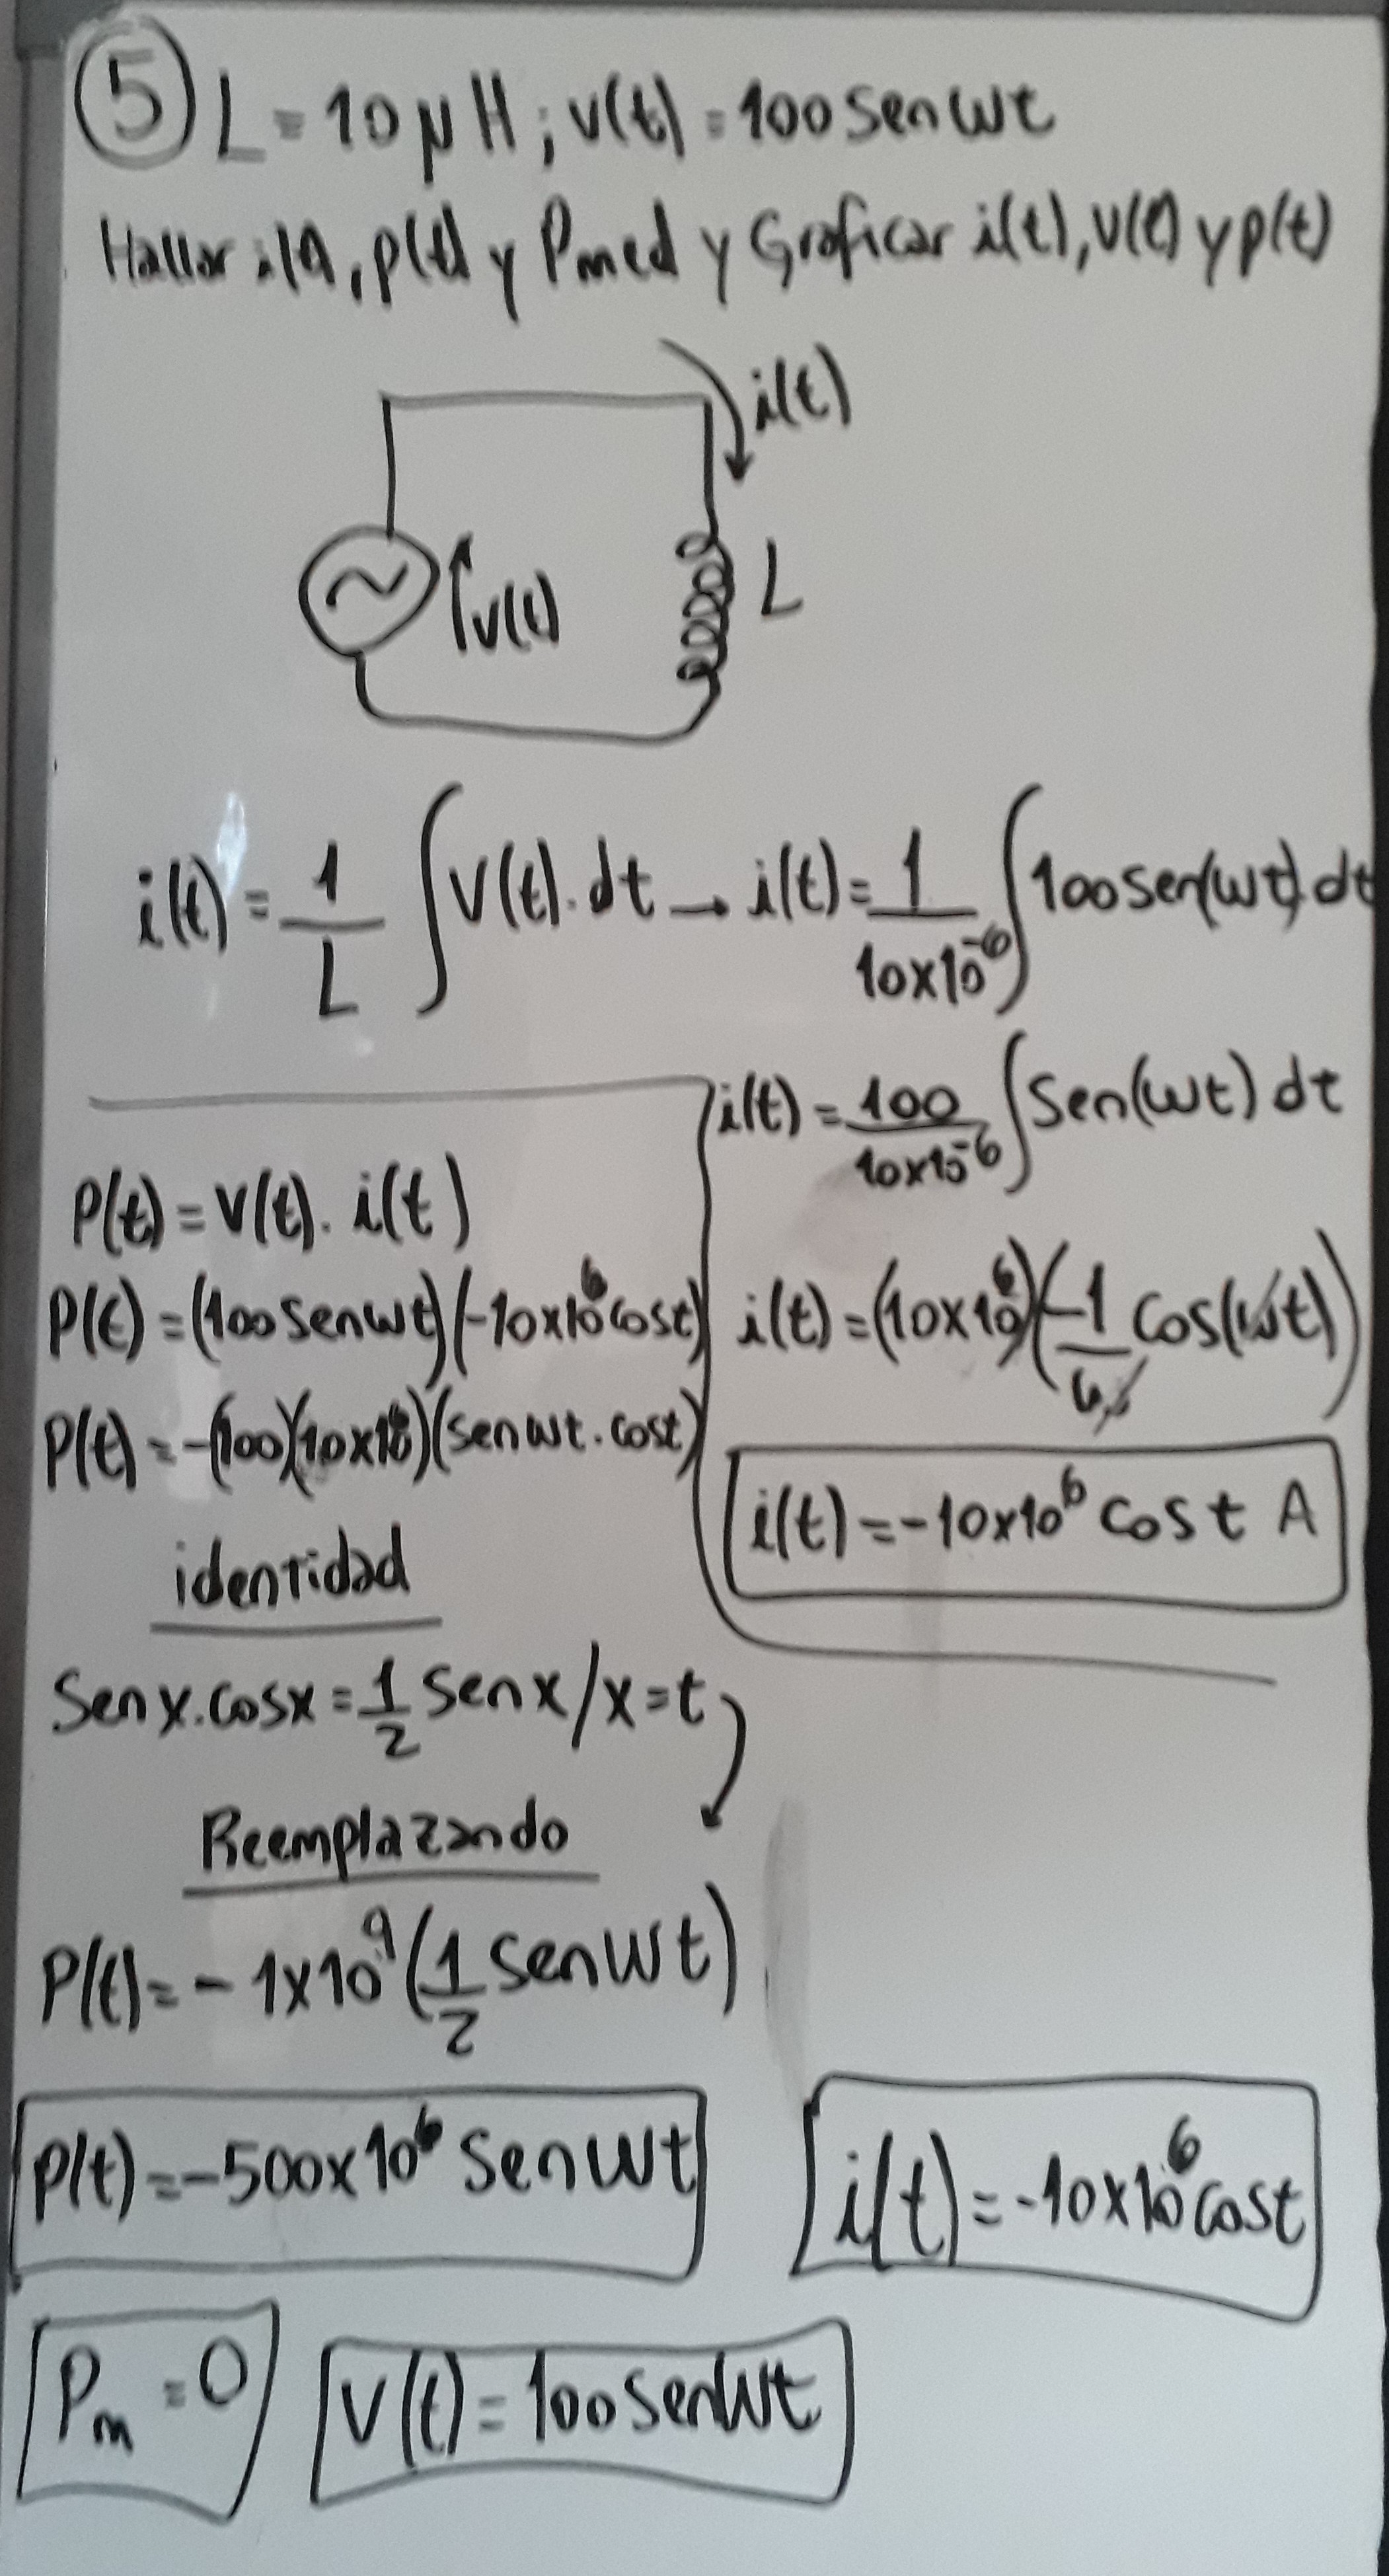 ⑤ L = 10 μH ; v(t) = 100 sen wt
Hallar i(t), p(t) y Pmed y Graficar i(t), v(t) y p(t)
i(t)
v(t)
L
i(t) = 1/L ∫ v(t). dt → i(t) = 1/(10x10⁻⁶) ∫ 100 sen(wt). dt
i(t) = 100/(10x10⁻⁶) ∫ sen(wt) dt
i(t) = (10x10⁶)(-1/w cos(wt))
i(t) = -10x10⁶ cos t A
P(t) = v(t). i(t)
P(t) = (100 sen wt)(-10x10⁶ cos t)
P(t) = -(100)(10x10⁶)(sen wt . cos t)
identidad
Sen x. cos x = 1/2 sen x / x = t
Reemplazando
P(t) = - 1x10⁹ (1/2 sen wt)
P(t) = -500x10⁶ sen wt
i(t) = -10x10⁶ cos t
Pm = 0
V(t) = 100 sen wt